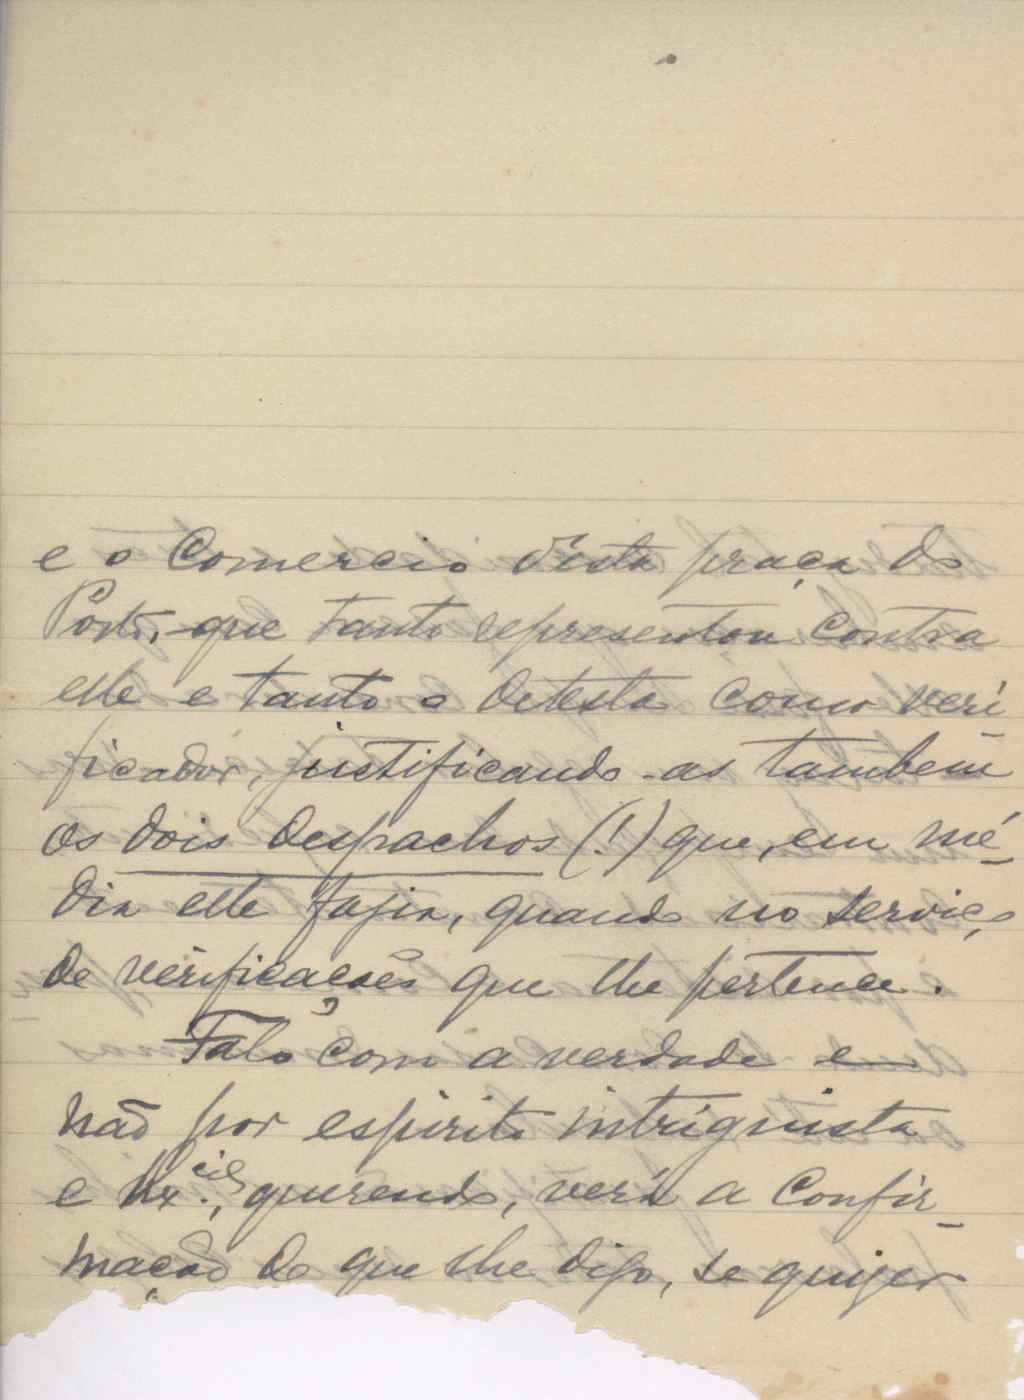 e o Comercio d'esta praça do
Porto, que tanto representou contra
elle e tanto o detesta como veri-
ficador, justificando-as tambem
os dois despachos (!) que, em mé-
dia elle fazia, quando no serviço
de verificações que lhe pertence.
Falo com a verdade e
não por espirito intriguista
e querendo, verá a confir-
mação do que lhe digo, se quizer